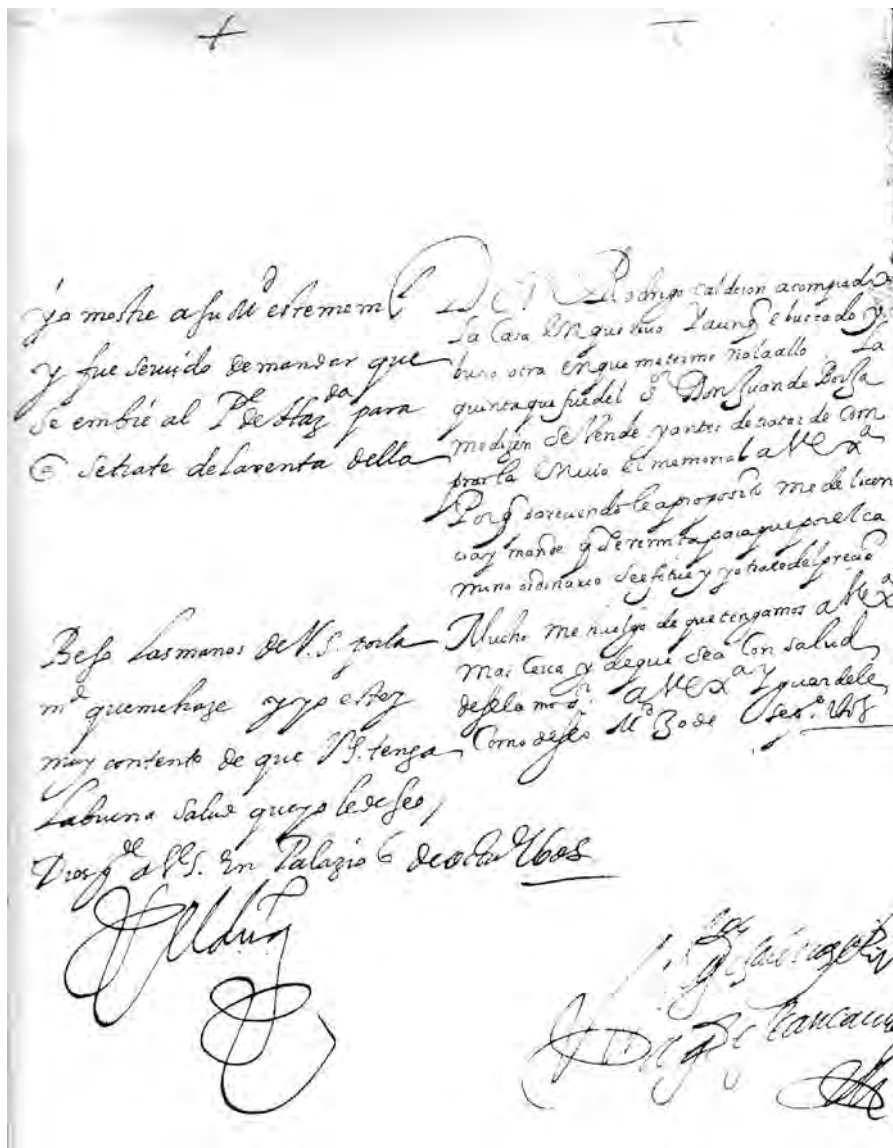 yo mostre a su M^d este mem^l
y fue seruido demandar que
se embie al P^te de Haz^da para
q setrate delaventa della
Beso lasmanos de V.S. porla
m^d quemehaze yyo estoy
muy contento de que V.S. tenga
labuena salud queyo ledeseo,
Dios g^de a V.S. En Palazio 6 de octu^e 1608
Rodrigo calderon acompiado
La Casa en que viuo Yaunq e buscado y
busco otra enque meterme nolaallo. La
quinta que fuedel s^r Don Juan de Borja
medizen sevende yantes detratar de com
prarla enuio el memorial a V ex^a
Porq pareciendole aproposito mede licen
cia y mande q seremita paraqueporelca
mino ordinario seefetue y yotratedelprecio
Mucho me huelgo de quetengamos a V ex^a
mas cerca y deque sea con salud
desela nro s^r a V ex^a y guardele
Como deseo M^d 30 de se^e 1608